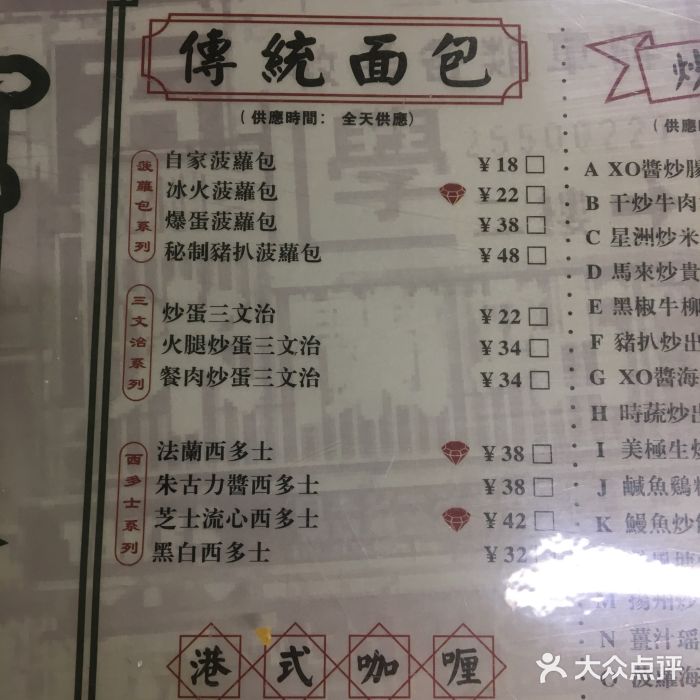 傳統面包
(供應時間： 全天供應)
菠蘿包系列
自家菠蘿包 ¥18
冰火菠蘿包 ¥22
爆蛋菠蘿包 ¥38
秘制豬扒菠蘿包 ¥48
三文治系列
炒蛋三文治 ¥22
火腿炒蛋三文治 ¥34
餐肉炒蛋三文治 ¥34
西多士系列
法蘭西多士 ¥38
朱古力醬西多士 ¥38
芝士流心西多士 ¥42
黑白西多士 ¥32
港式咖喱
炒
(供應
A XO醬炒豚
B 干炒牛肉
C 星洲炒米
D 馬來炒貴
E 黑椒牛柳
F 豬扒炒出
G XO醬海
H 時蔬炒出
I 美極生炒
J 鹹魚鷄粒
K 鰻魚炒飯
M 揚州炒
N 薑汁瑤
O 菠蘿海
大众点评